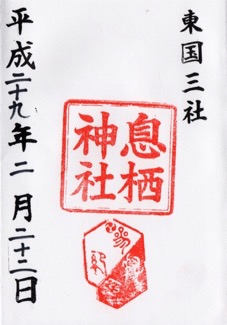 東国三社
息栖
神社
平成二十九年二月二十二日